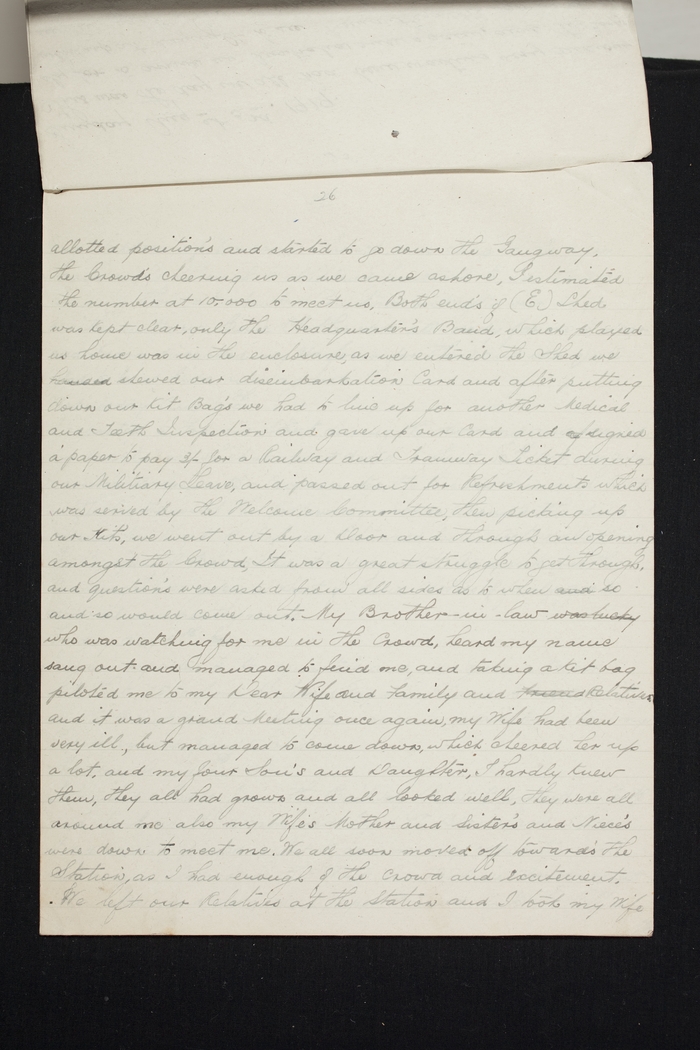 26
allotted position's and started to go down the Gangway,
the Crowds cheering us as we came ashore, I estimated
the number at 10.000 to meet us, Both end's of (E) Shed
was kept clear, only the Headquarter's Band, which played
us home was in the enclosure, as we entered the Shed we
handed shewed our disembarkation Card and after putting
down our Kit Bag's we had to line up for another Medical
and Teeth Inspection and gave up our Card and signed
a paper to pay 3/- for a Railway and Tramway Ticket during
our Military Leave, and passed out for Refreshments which
was served by the Welcome Committee, then picking up
our Kits, we went out by a Door and through an opening
amongst the Crowd, It was a great struggle to get through,
and question's were asked from all sides as to when and so
and so would come out. My Brother-in-law was lucky
who was watching for me in the Crowd, heard my name
sang out and managed to find me, and taking a kit bag
piloted me to my Dear Wife and Family and friend Relatives
and it was a grand Meeting once again, my Wife had been
very ill, but managed to come down, which cheered her up
a lot, and my four Son's and Daughter, I hardly knew
them, they all had grown and all looked well, they were all
around me also my Wife's Mother and Sister's and Niece's
were down to meet me. We all soon moved off toward's the
Station, as I had enough of the Crowd and excitement.
We left our Relatives at the Station and I took my Wife